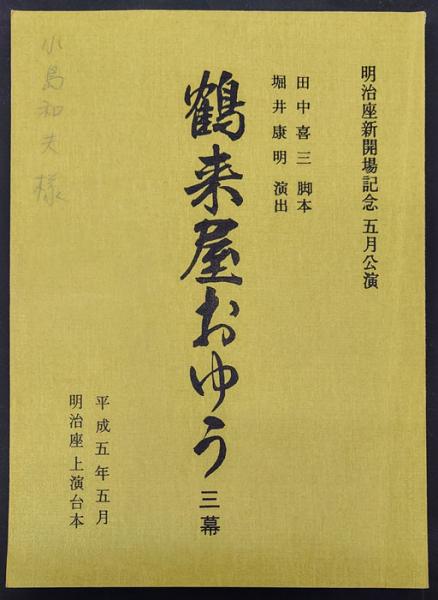 明治座新開場記念 五月公演
田中喜三 脚本
堀井康明 演出
鶴来屋おゆう 三幕
平成五年五月
明治座 上演台本
小島和夫様